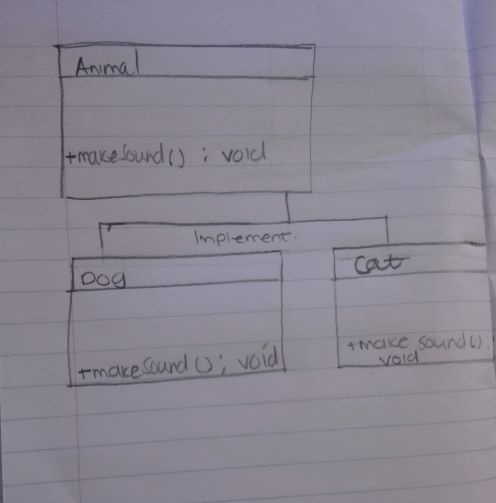 Animal
+makeSound() : void
Implement.
Dog
+makeSound() ; void
Cat
+make sound().
void